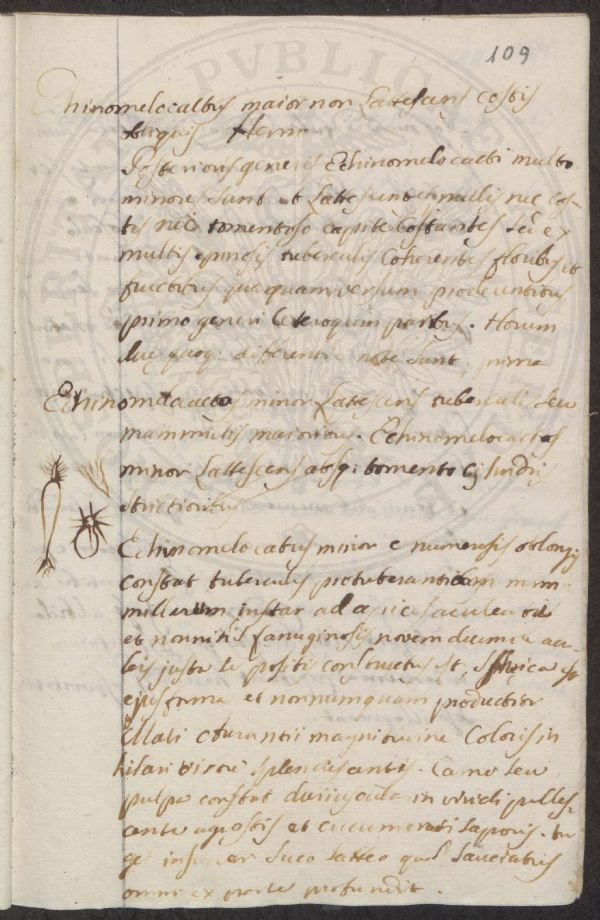 109
Echinomelocactus maior non Lattescens costis
Herm
Posterioris generis Echinomelocacti multo
minores sunt et Lattescentes nullis nec cos-
tis nec tomentoso capite Costantes sed ex
multis spinosis tuberculis Coherentes floribus et
fructibus quaquamversum prodeuntibus
primo generi Ceteroquin paribus. Horum
quoq; differentie note sunt, prima
Echinomelocactos minor Lattescens tuberculis seu
mammulis maioribus. Echinomelocactos
minor Lattescens absq; tomento cylindris
strictioribus
Echinomelocatus minor e numerosis oblongis
constat tuberculis protuberantibus mam-
millarum instar ad apices aculeatis
et nonnihil lanuginosis novem decemve acu-
leis juxta se positis constructus est, Spherica est
ejus forma et nonnumquam productior
Mali Aurantii magnitudine Coloris in
hilari virore splendescentis. Carne seu
pulpa constat duriuscula in viridi palles-
cente agrestis et cucumeracei saporis.
insuper suco Latteo quem sauciatus
omni ex parte profundit.